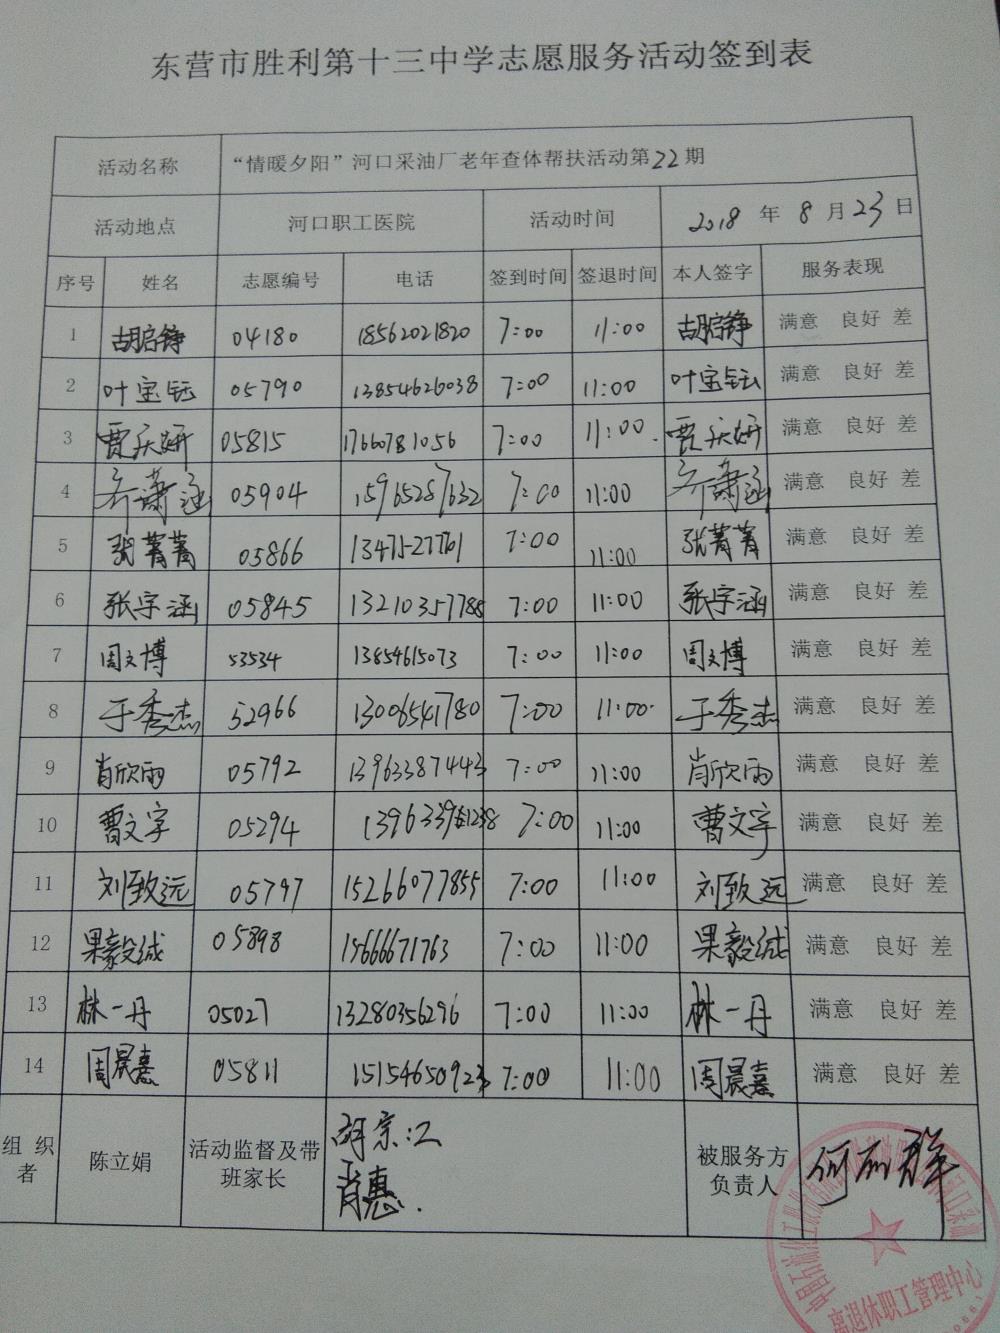 东营市胜利第十三中学志愿服务活动签到表
活动名称 “情暖夕阳”河口采油厂老年查体帮扶活动第22期
活动地点 河口职工医院 活动时间 2018年8月23日
序号 姓名 志愿编号 电话 签到时间 签退时间 本人签字 服务表现
1 胡启铮 04180 18562021820 7:00 11:00 胡启铮 满意 良好 差
2 叶宝钰 05790 13854626038 7:00 11:00 叶宝钰 满意 良好 差
3 贾庆妍 05815 17660781056 7:00 11:00. 贾庆妍 满意 良好 差
4 齐萧涵 05904 15965287632 7:00 11:00 齐萧涵 满意 良好 差
5 张菁菁 05866 7:00 11:00 张菁菁 满意 良好 差
6 张宇涵 05845 13210357785 7:00 11:00 张宇涵 满意 良好 差
7 周文博 53534 13854615073 7:00 11:00 周文博 满意 良好 差
8 于秀杰 52966 13006541780 7:00 11:00. 于秀杰 满意 良好 差
9 肖欣雨 05792 13963387443 7:00 11:00 肖欣雨 满意 良好 差
10 曹文宇 05294 7:00 11:00 曹文宇 满意 良好 差
11 刘致远 05797 15266077855 7:00 11:00 刘致远 满意 良好 差
12 果毅诚 05898 15666671763 7:00 11:00 果毅诚 满意 良好 差
13 林一丹 05027 13280356296 7:00 11:00 林一丹 满意 良好 差
14 周晨熹 05811 15154650923 7:00 11:00 周晨熹 满意 良好 差
组织者 陈立娟 活动监督及带班家长 胡宗江
肖惠.
被服务方负责人 何丽群
离退休职工管理中心